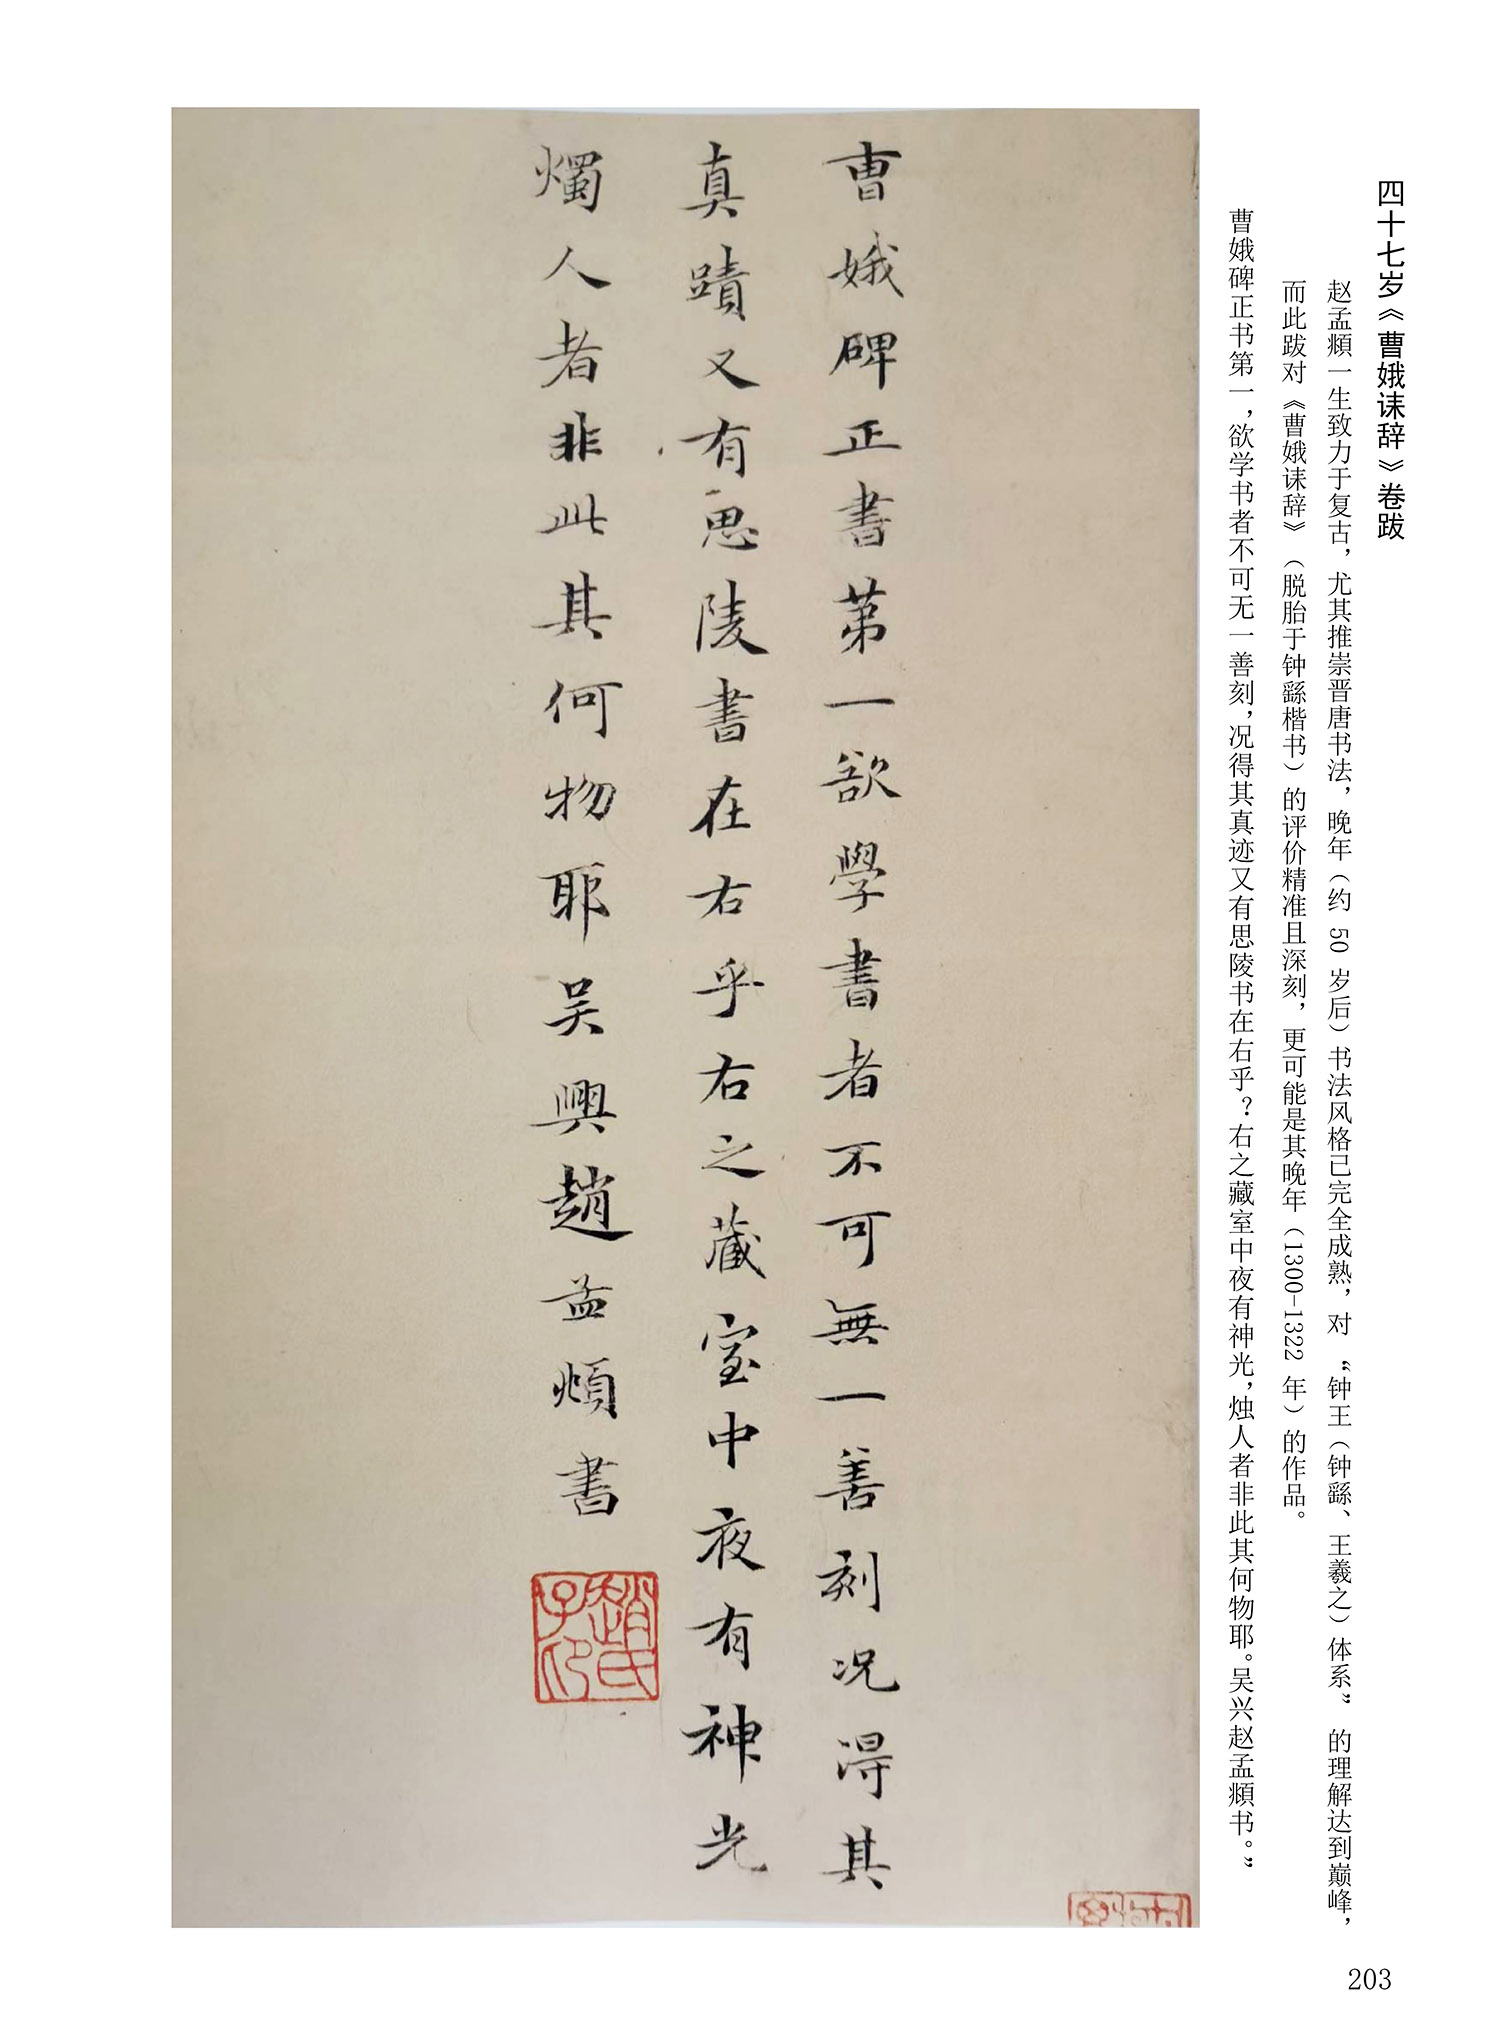 四十七岁《曹娥诔辞》卷跋
赵孟頫一生致力于复古，尤其推崇晋唐书法，晚年（约 50 岁后）书法风格已完全成熟，对 “钟王（钟繇、王羲之）体系” 的理解达到巅峰，
而此跋对《曹娥诔辞》（脱胎于钟繇楷书）的评价精准且深刻，更可能是其晚年（1300-1322 年）的作品。
曹娥碑正书第一，欲学书者不可无一善刻，况得其真迹又有思陵书在右乎？右之藏室中夜有神光，烛人者非此其何物耶。吴兴赵孟頫书。”
曹娥碑正書第一欲學書者不可無一善刻况得其
真蹟又有思陵書在右乎右之藏室中夜有神光
燭人者非此其何物耶吴興趙孟頫書
趙氏子印
203